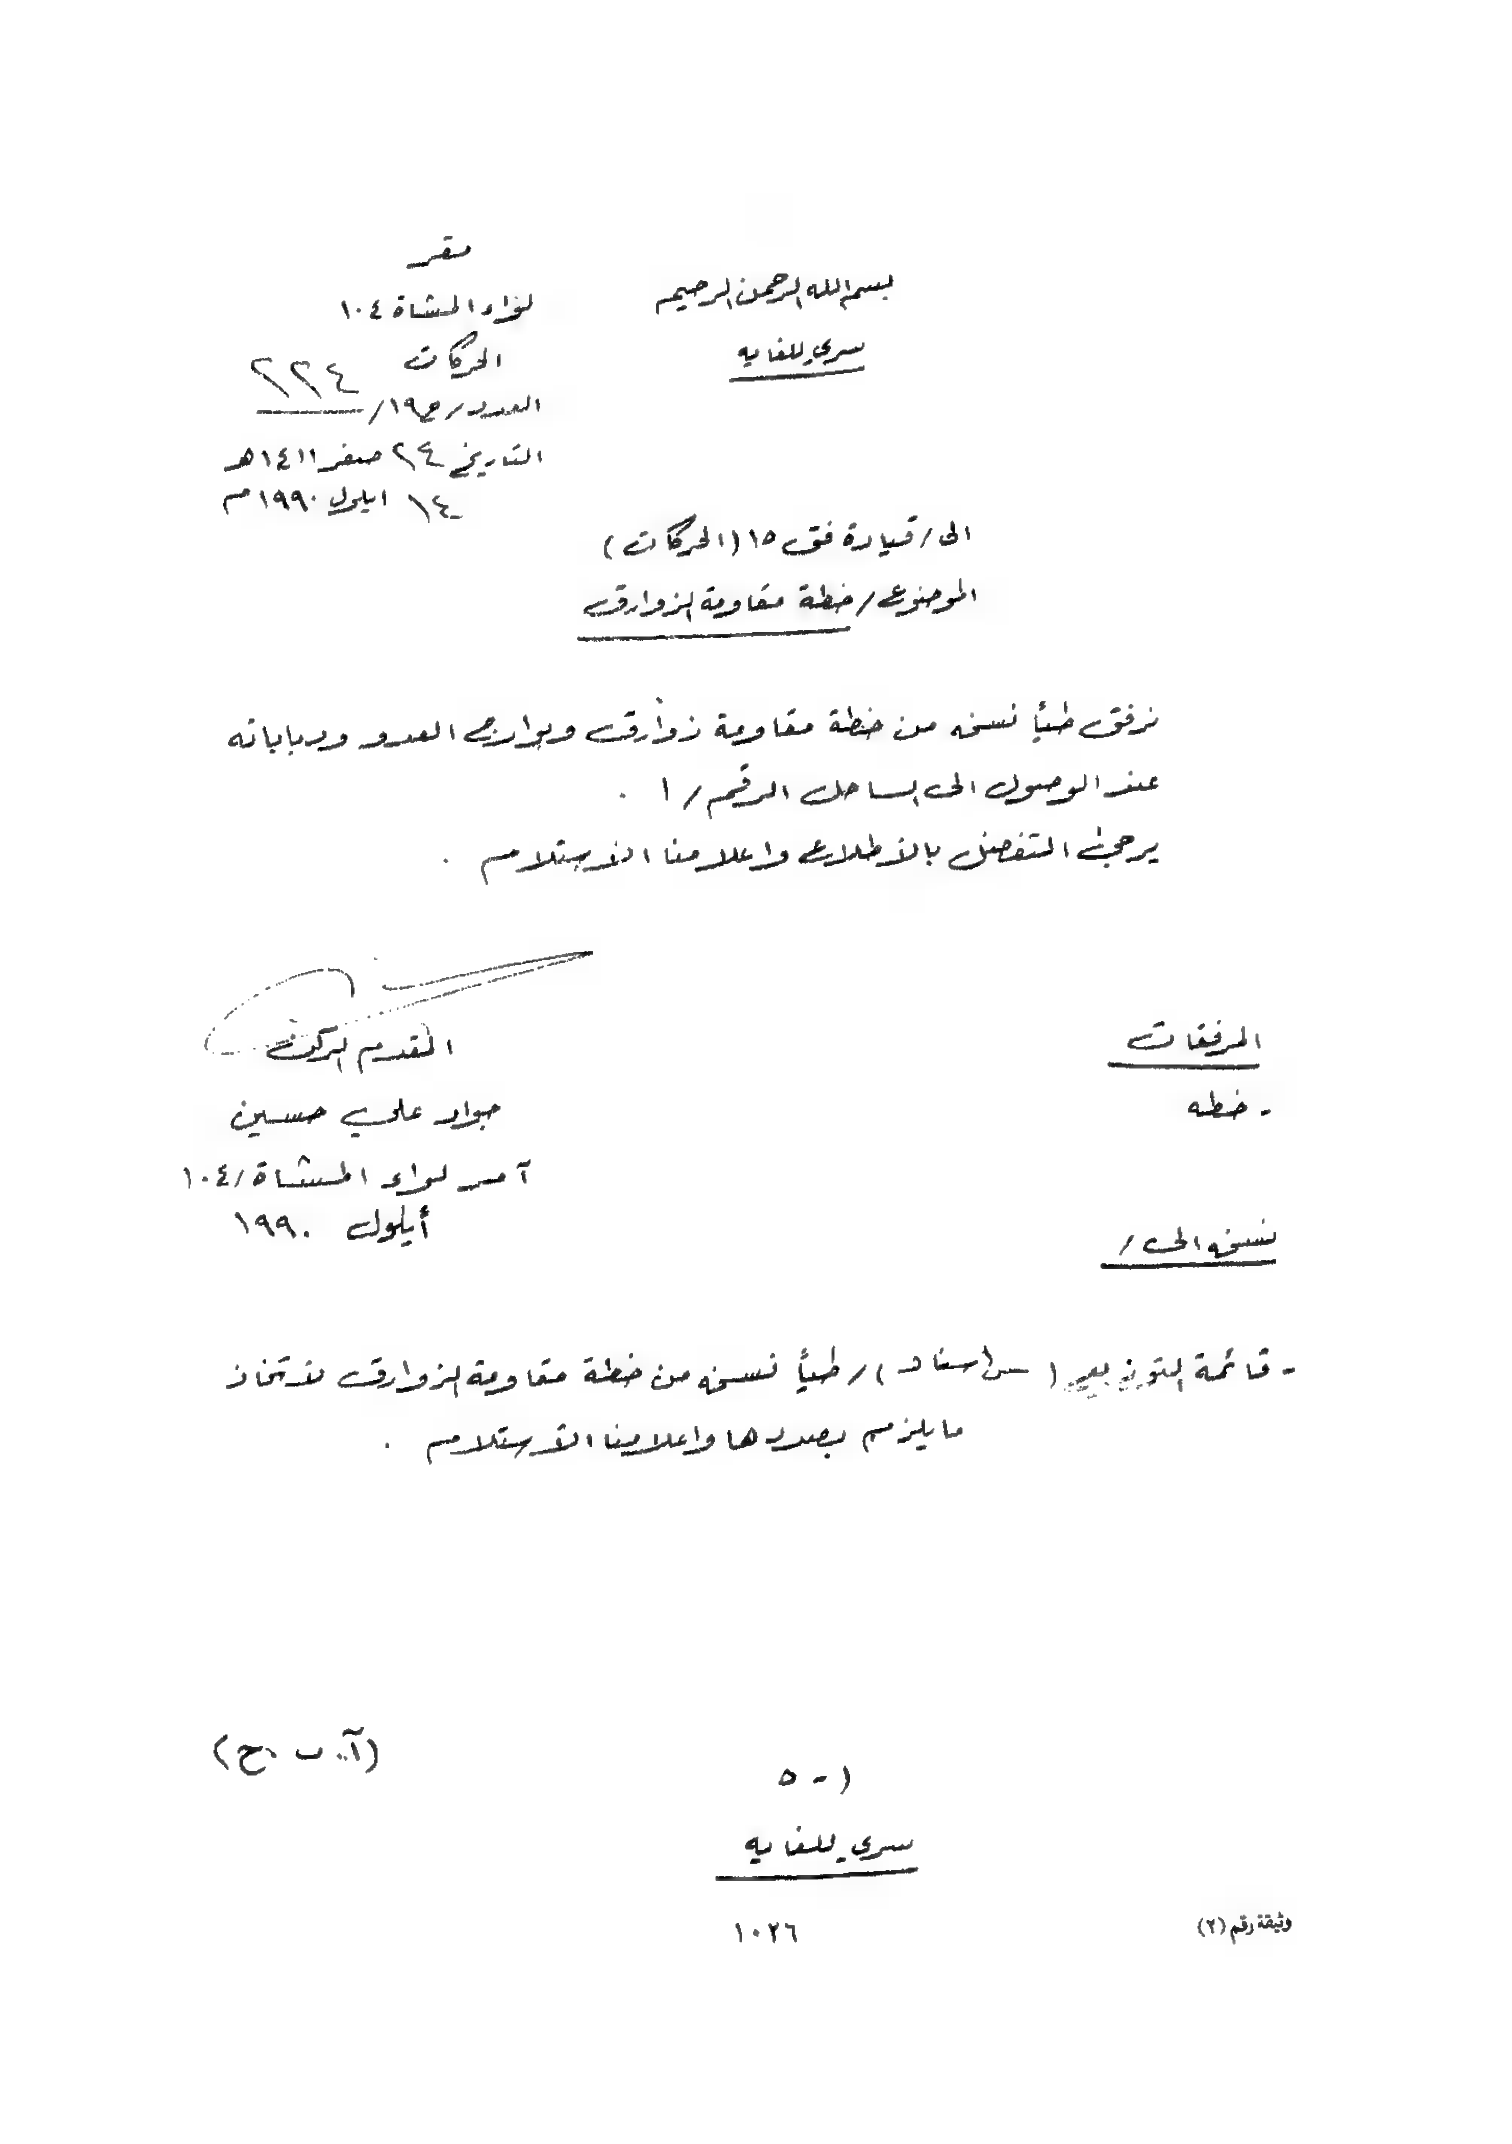 بسم الله الرحمن الرحيم
سري للغايه
مقر
لواء المشاة ١٠٤
الحركات
العدد/ح١٩/ ٢٢٤
التاريخ ٢٤ صفر ١٤١١هـ
١٤ ايلول ١٩٩٠م
الى/قيادة فق ١٥ (الحركات)
الموضوع/خطة مقاومة الزوارق
نرفق طياً نسخه من خطة مقاومة زوارق وبوارج العدو ودباباته
عند الوصول الى الساحل الرقم/١ .
يرجى التفضل بالاطلاع واعلامنا الاستلام .
المقدم الركن
جواد علي حسين
آمر لواء المشاة/١٠٤
أيلول ١٩٩٠
المرفقات
- خطه
نسخه الى/
- قائمة التوزيع ( اسناد )/طياً نسخه من خطة مقاومة الزوارق لاتخاذ
مايلزم بصددها واعلامنا الاستلام .
(آ. ب .ح)
١-٥
سري للغايه
وثيقة رقم (٢)
١٠٢٦